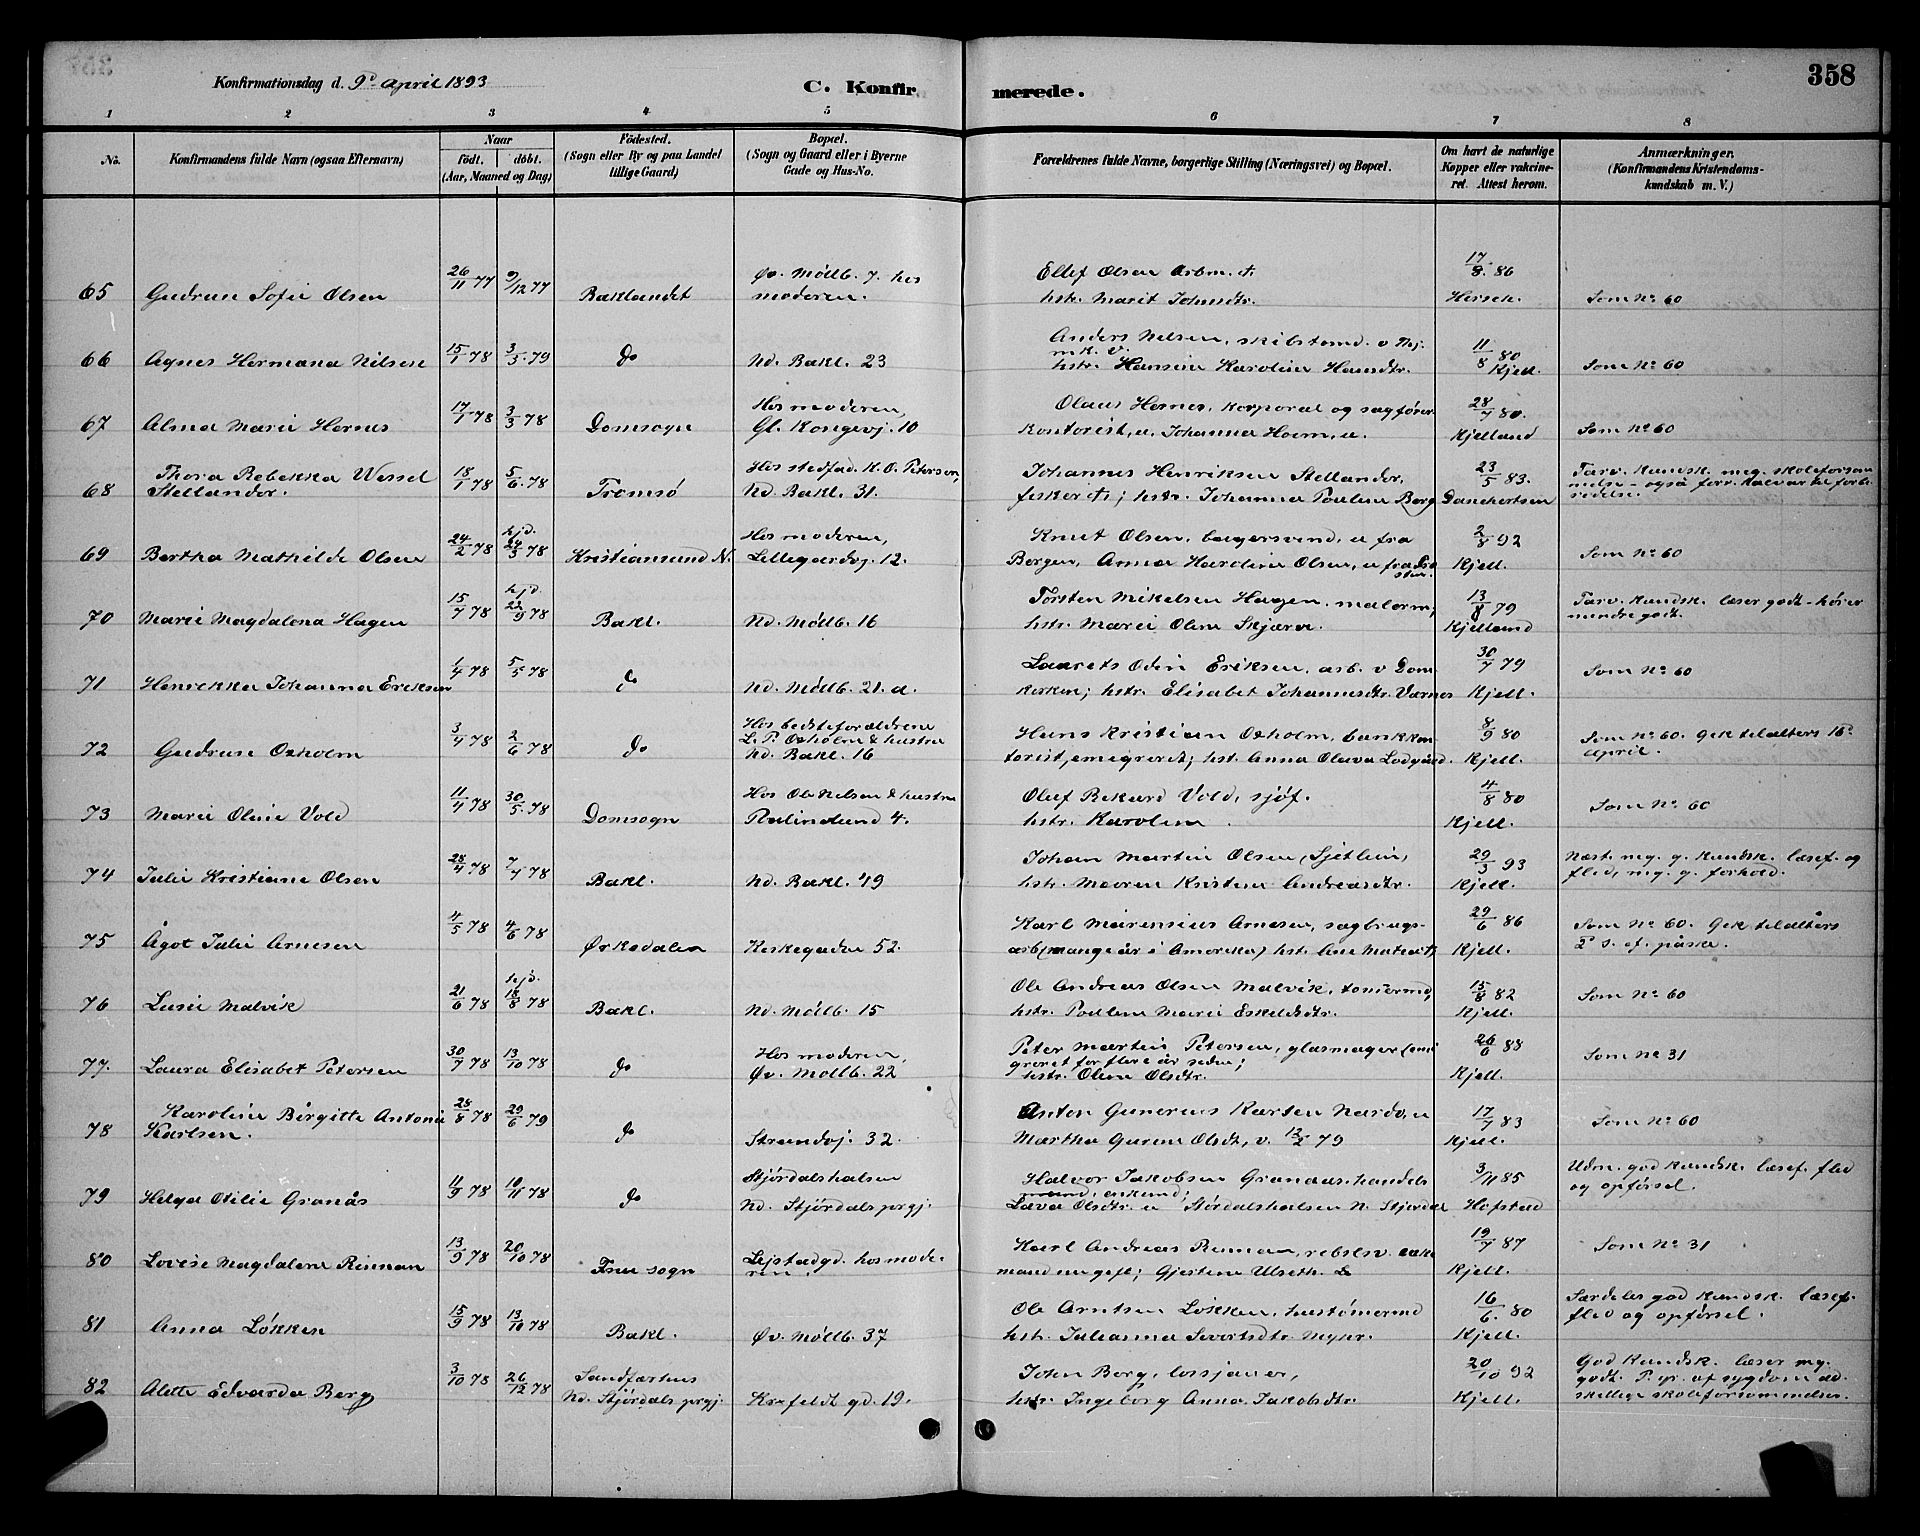 358
Konfirmationsdag d. 9de April 1893
C. Konfirmerede.
1 2 3 4 5 6 7 8
No.
Konfirmandens fulde Navn (ogsaa Efternavn)
Naar
født. døbt.
(Aar, Maaned og Dag)
Fødested.
(Sogn eller By og paa Landet
tillige Gaard)
Bopæl.
(Sogn og Gaard eller i Byerne
Gade og Hus-No.
Forældrenes fulde Navne, borgerlige Stilling (Næringsvei) og Bopæl.
Om havt de naturlige
Kopper eller vakcine-
ret. Attest herom.
Anmærkninger.
(Konfirmandens Kristendoms-
kundskab m. V.)
65 Gudrun Sofie Olsen 26/11 77 9/12 77 Baklandet
Øv. Møllb. 7. hos
moderen.
Ellef Olsen Arbm. †.
hstr. Marit Johnsdtr.
17/8. 86
Som No 60
66 Agnes Hermana Nilsen 15/1 78 3/5. 79 do Nd. Bakl. 23
Anders Nilsen, skibstømd. v Thj.
m.k.v.
hstr. Hansine Karoline Hansdtr.
11/8 80
Kjell.
Som No 60
67 Alma Marie Hernes 17/1 78 3/3 78 Domsogn
Hos moderen,
Gl. Kongevj. 10
Olaus Hernes, korporal og sagfører
kontorist, u. Johanna Hoem, u.
28/7 80.
Kjelland
Som No 60
68 Thora Rebekka Wessel
Stellander.
18/1 78 5/6. 78 Tromsø
Hos stedfad. K. O. Petersen,
Nd. Bakl. 31.
Johannes Henriksen Stellander,
fisker †; hstr. Johanna Pouline Berg
23/5 83.
Danchertsen
Tarv. kundsk. meg. skoleforsøm
melse - også forv. Kalvar til forbe
redelse.
69 Bertha Mathilde Olsen 24/2 78 hjd. 24/3 78 Kristiansund N.
Hos moderen,
Lillegårdsvj. 12.
Knut Olsen, bagersvend, u fra
Bergen, Anna Karoline Olsen, u fra
2/8 92
Kjell.
Som No 60
70 Marie Magdalena Hagen 15/7 78 hjd. 22/9 78 Bakl. Nd. Møllb. 16
Torsten Mikelsen Hagen, malerm;
hstr. Marie Oline Skjære.
13/8 79
Kjelland
Tarv. kundsk. læser godt - hører
mindre godt.
71 Henrikka Johanna Eriksen 1/4 78 5/5 78 do Nd. Møllb. 21. a.
Laurits Odin Eriksen, arb. v Dom
kirken; hstr. Elisabet Johannesdtr. Værnes
30/7 79
Kjell.
Som No 60
72 Gudrun Oxholm 3/4 78 2/6 78 do
Hos bedsteforældrene
L. P. Oxholm & hustru
Nd. Bakl. 16
Hans Kristian Oxholm, bankkon
torist, emigreret; hst. Anna Olava Lodgård.
8/9 80
Kjell.
Som No 60. Gik til alters 16de
April.
73 Marie Oline Vold 11/4 78 30/5. 78 Domsogn
Hos Ole Nilsen & hustru
Rulindlund 4.
Oluf Rikard Vold, sjøf.
hstr. Karoline .
4/8 80
Kjell.
Som No 60
74 Julie Kristiane Olsen 28/4 78 7/7 78 Bakl. Nd. Bakl. 49
Johan Martin Olsen (Sjetlein),
hstr. Maren Kristine Andreasdtr.
29/3 93
Kjell.
Næst. mg. g. kundsk. læsef. og
flid, mg. g. forhold.
75 Ågot Julie Arnesen 4/5 78 4/6 78 Ørkedalen Kirkegaden 52.
Karl Marensius Arnesen, sagbrugs-
arb (mange år i Amerika) hst. Ane
29/6 86
Kjell.
Som No 60. Gik til alters
2 S. ef. påske.
76 Lusie Malvik 21/6 78 hjd. 18/8 78 Bakl. Nd. Møllb. 15
Ole Andreas Olsen Malvik, tømermd,
hstr. Pouline Marie Eskildsdtr.
15/8 82
Kjell.
Som No 60
77. Laura Elisabet Petersen 30/7 78 13/10 78 do
Hos moderen,
Øv. Møllb. 22
Peter Martin Petersen, glasmager (emi
greret for flere år siden;
hstr. Oline Olsdtr.
26/6 88
Kjell.
Som No 31
78 Karoline Birgitte Antonie
Karlsen.
28/8 78 29/6 79 do Strandvj. 32.
Anton Gunerius Karsen Nardo, u
Martha Gurine Olsdt, v. 12/2 79
17/7 83
Kjell.
Som No 60
79 Helga Otilie Granås 11/9 78 10/11 78 do
Stjørdalshalsen
Nd. Stjørdals prgj.
Halvor Jakobsen Granaas, handels
mand, enkemd;
Lava Olsdtr. u Størdalshalsen N. Stjørdal
3/11 85
Hofstad
Udm. god kundsk. læsef. flid
og opførsel.
80 Lovise Magdalene Rinnan 13/9 78 20/10 78 Frue sogn
Lejstadgd. hos mode-
ren.
Karl Andreas Rinnan, rebslsv. enke
mand nugift; Gjertine Ulseth.
19/7 87
Kjell.
Som No 31
81 Anna Løkken 15/9 78 13/10 78 Bakl. Øv. Møllb. 37
Ole Arntsen Løkken, hustømermd
hstr. Julianna Sivertsdtr. Myhr.
16/6. 80
Kjell.
Særdeles god kundsk. læsef.
flid og opførsel.
82 Alette Edvarda Berg 3/10 78 26/12 78
Sandfærhus
Nd. Stjørdals prgj. Krefeldt gd. 19.
John Berg, lossjauer,
hstr. Ingeborg Anna Jakobsdtr.
20/10 92
Kjell.
God kundsk. læser mg.
godt. P. gr. af sygdom ad-
skillige skoleforsømmelser.